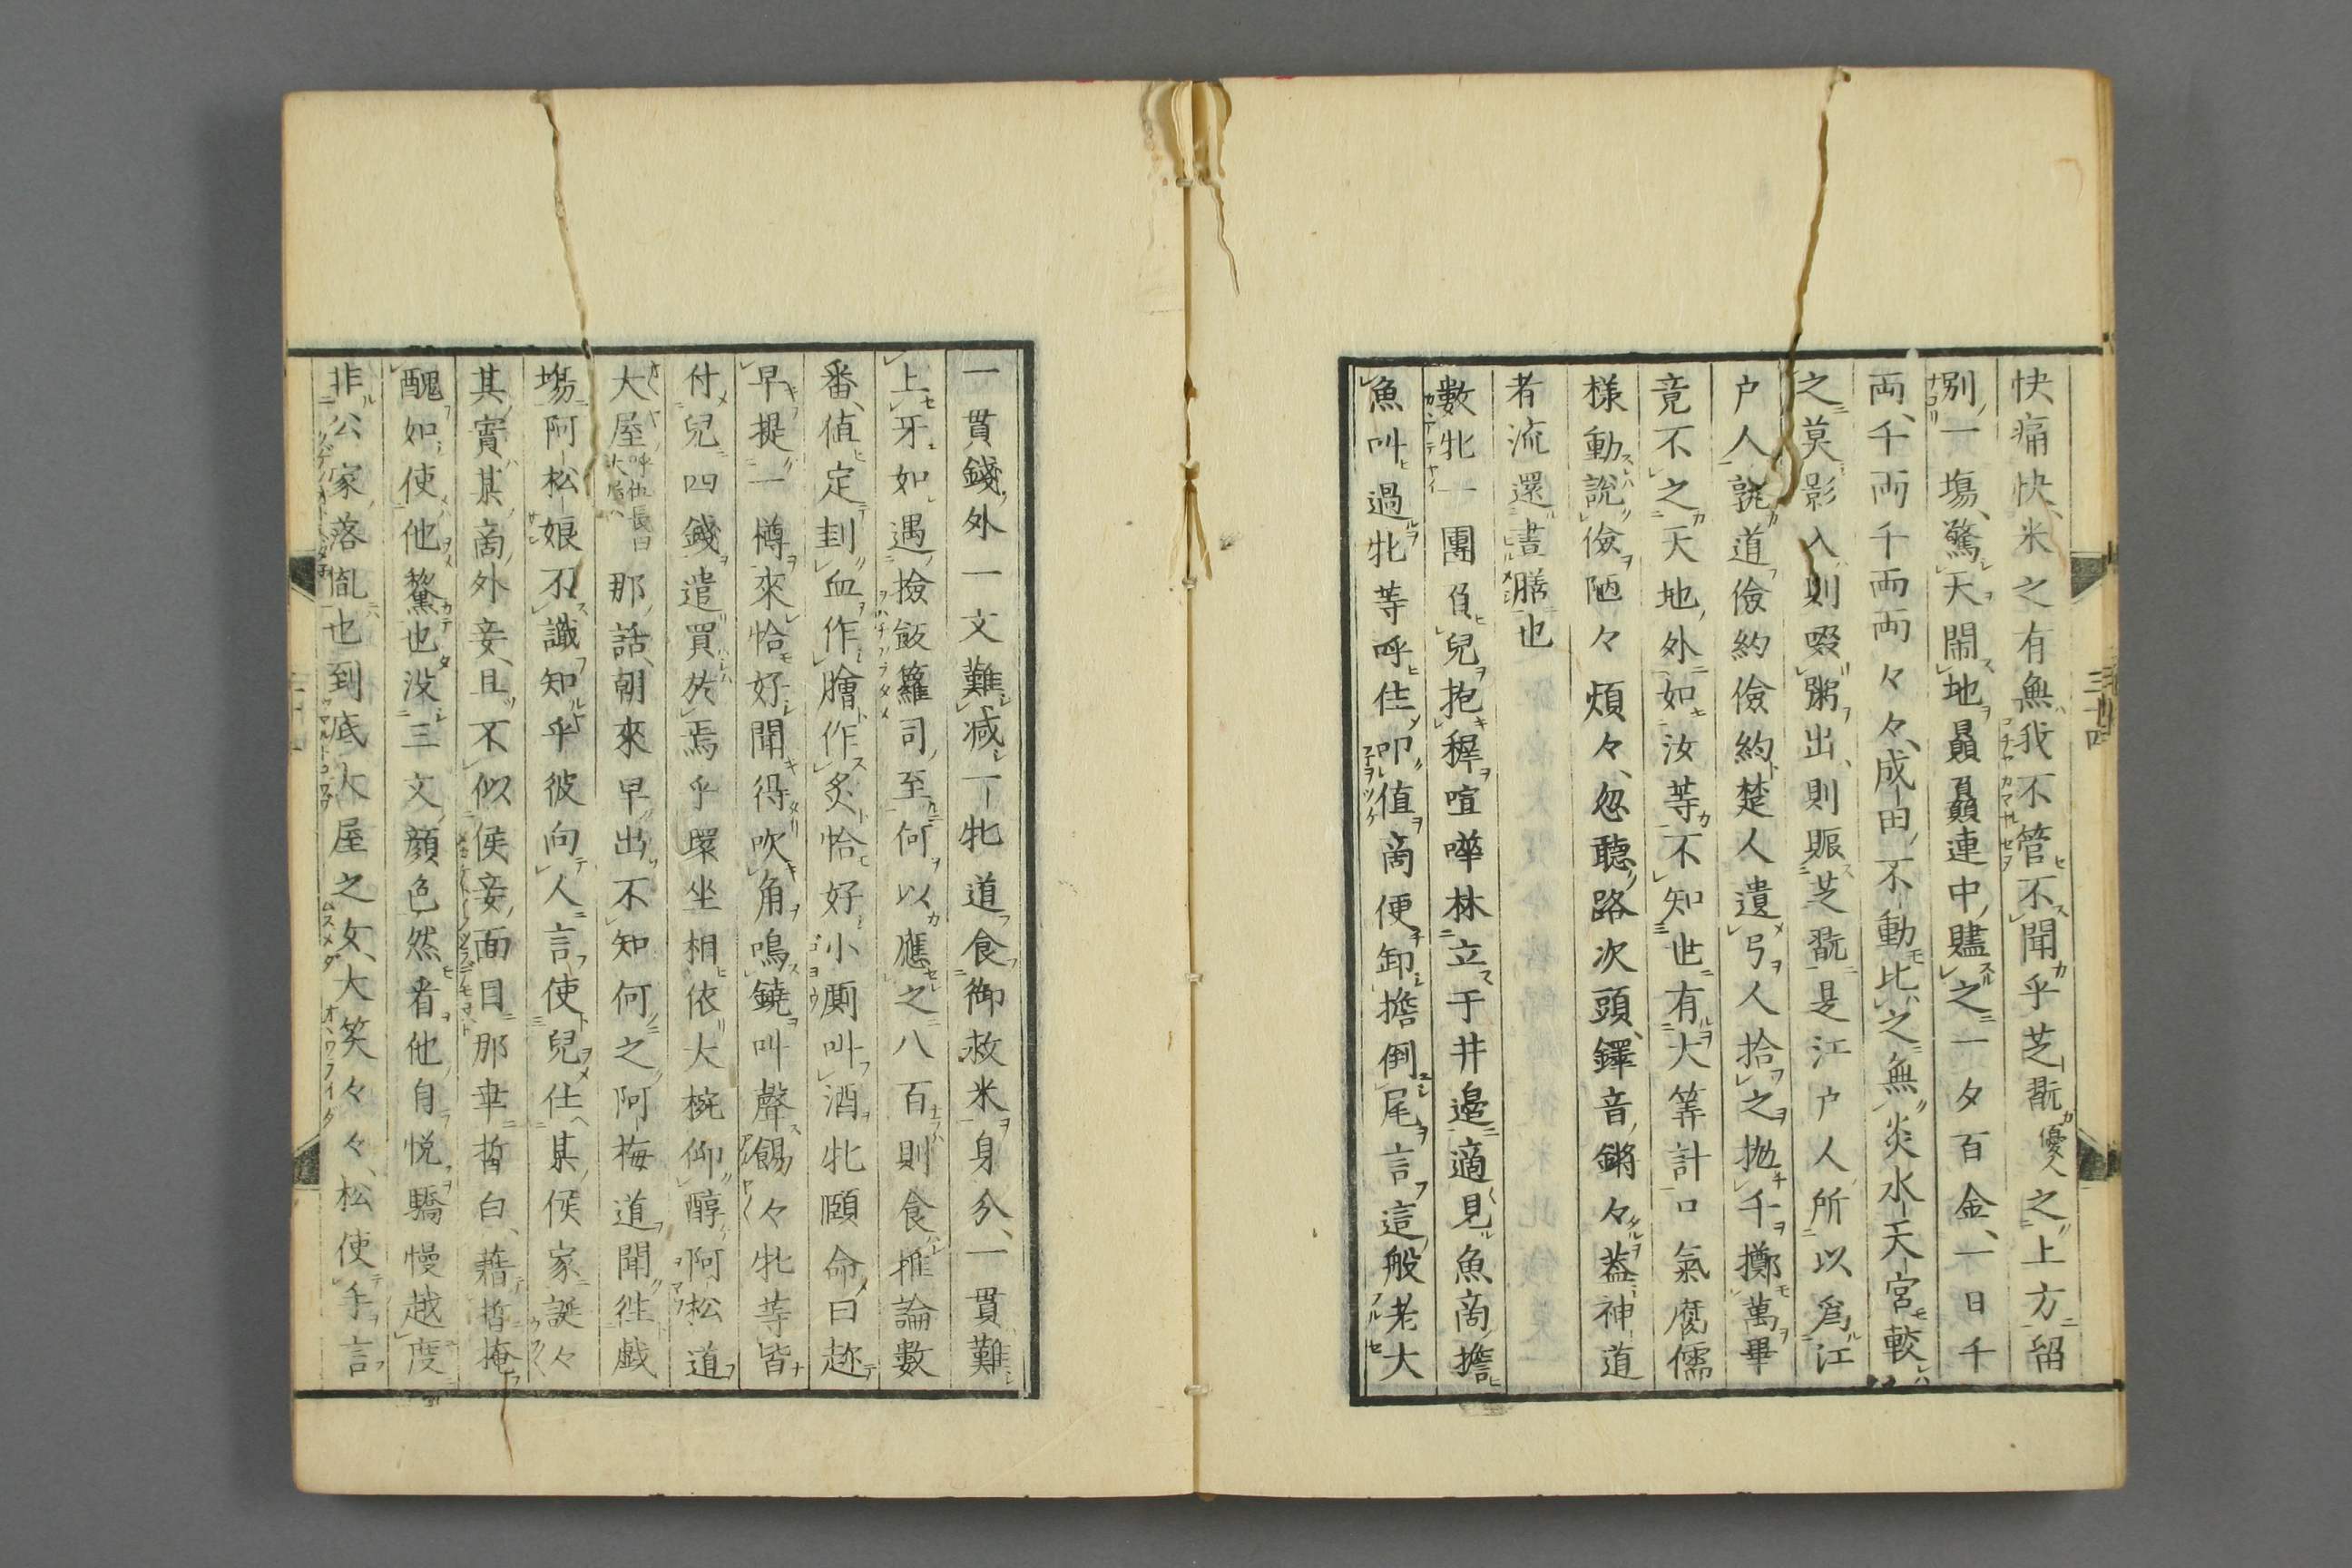 快痛快、米之有無我不管不聞乎芝翫優人之上方留
別一場、驚天閙地贔屓連中、贐之一夕百金、一日千
両、千両千両両々々、成田不動比之無炎水天宮較
之莫影、入則啜粥出、則賑芝翫是江戸人所以為江
戸人説道儉約儉約楚人遺弓人拾之抛千擲萬畢
竟不之天地外如汝等不知世有大筭計口氣腐儒
様動説儉陋々煩々、忽聽路次頭、鐸音鏘々蓋神道
者流還晝膳也
數牝一團負兒抱穉喧嘩林立于井邉適見魚商擔
魚叫過牝等呼住叩値商便卸擔倒尾言這般老大
三十四
一貫錢外一文難减一牝道食御救米身分、一貫難
上牙如遇撿飯籮司至何以應之八百則食推論數
番、値定刲血作膾作炙恰好小厮叫酒牝頤命曰趂
早提一樽來恰好聞得吹角鳴鐃叫聲餳々牝等皆
付兒四錢遣買於焉乎環坐相依大椀仰醇阿松道
大屋呼伍長曰大屋那話、朝來早出不知何之阿梅道聞徃戯
場阿松娘不識知乎彼向人言使兒仕某侯家誕々
其實某商外妾、且不似侯妾面目那丰晳白、藉晳掩
醜如使他鰲也没三文顔色然看他自悦驕慢越度
非公家落胤也到底大屋之女、大笑々々、松使手言